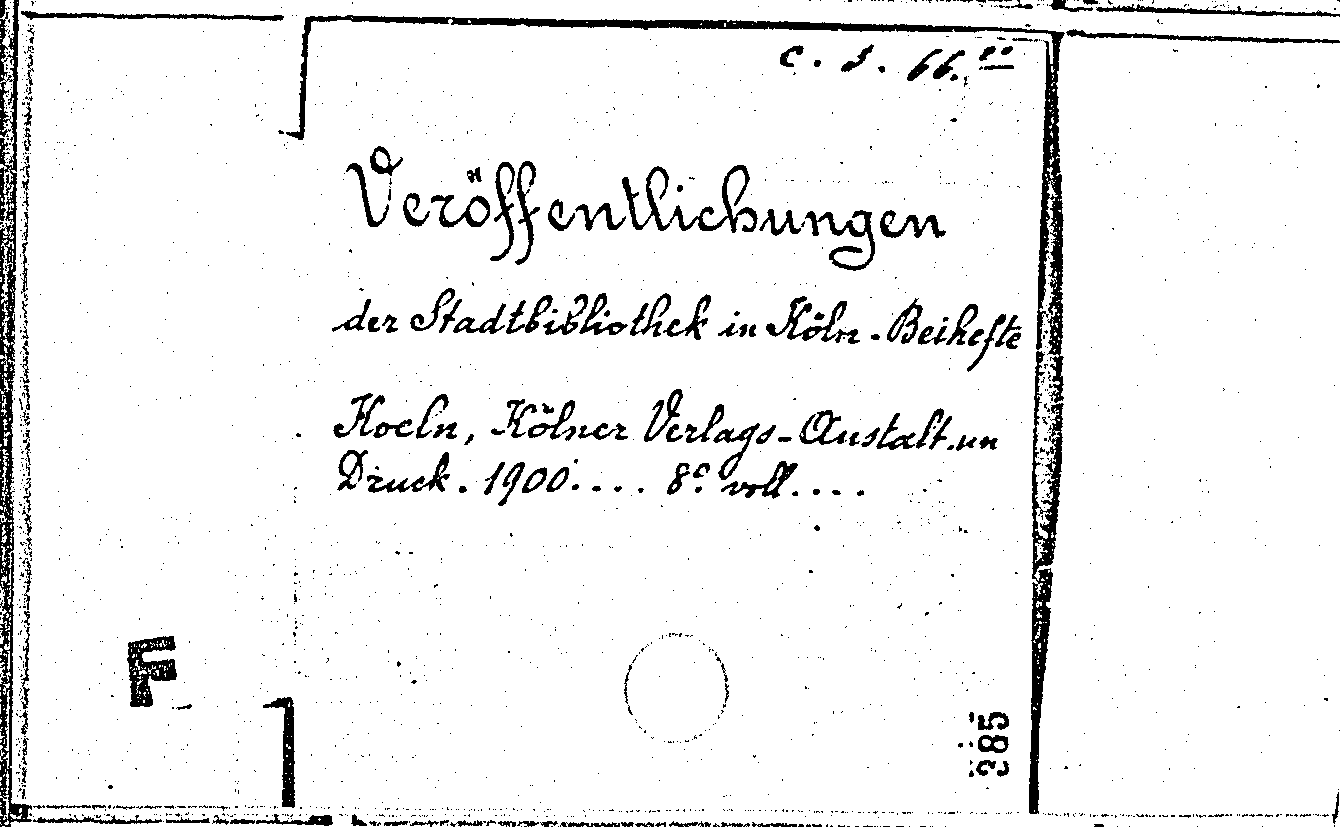 c. s. 66.
Veröffentlichungen
der Stadtbibliothek in Köln - Beihefte
Koeln, Kölner Verlags-Anstalt. un
Druck. 1900.... 8º. voll....
F
385